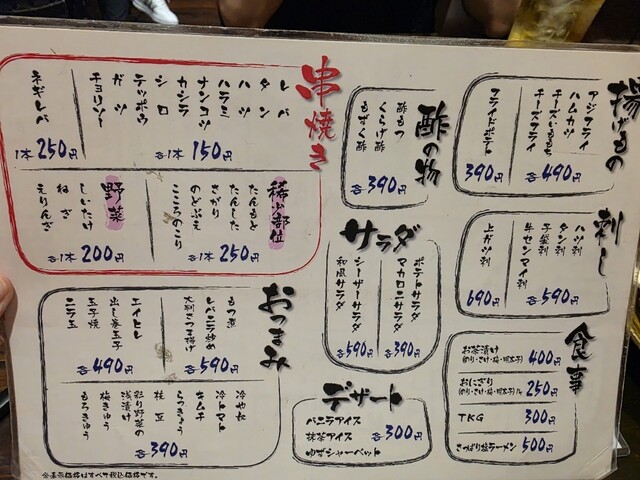 串焼き
レバ
タン
ハツ
ハラミ
ナンコツ
カシラ
シロ
テッポウ
各1本150円
ガツ
チョリソー
ネギレバ
1本250円
稀少部位
たんもと
たんした
さがり
のどぶえ
こころのこり
各1本250円
野菜
しいたけ
ねぎ
えりんぎ
各1本200円
酢の物
酢もつ
くらげ酢
もずく酢
各390円
揚げもの
アジフライ
ハムカツ
チーズいももち
チーズフライ
各490円
フライドポテト
390円
サラダ
ポテトサラダ
マカロニサラダ
各390円
シーザーサラダ
和風サラダ
各590円
刺し
ハツ刺
タン刺
子袋刺
牛センマイ刺
各590円
上ガツ刺
690円
おつまみ
もつ煮
レバニラ炒め
大判さつま揚げ
各590円
エイヒレ
出し巻玉子
玉子焼
ニラ玉
各490円
冷やし
冷トマト
キムチ
らっきょう
枝豆
彩り野菜の
浅漬け
梅きゅう
もろきゅう
各390円
デザート
バニラアイス
抹茶アイス
ゆずシャーベット
各300円
食事
お茶漬け
400円
おにぎり
250円
TKG
300円
さっぱり塩ラーメン
500円
※表示価格はすべて税込価格です。